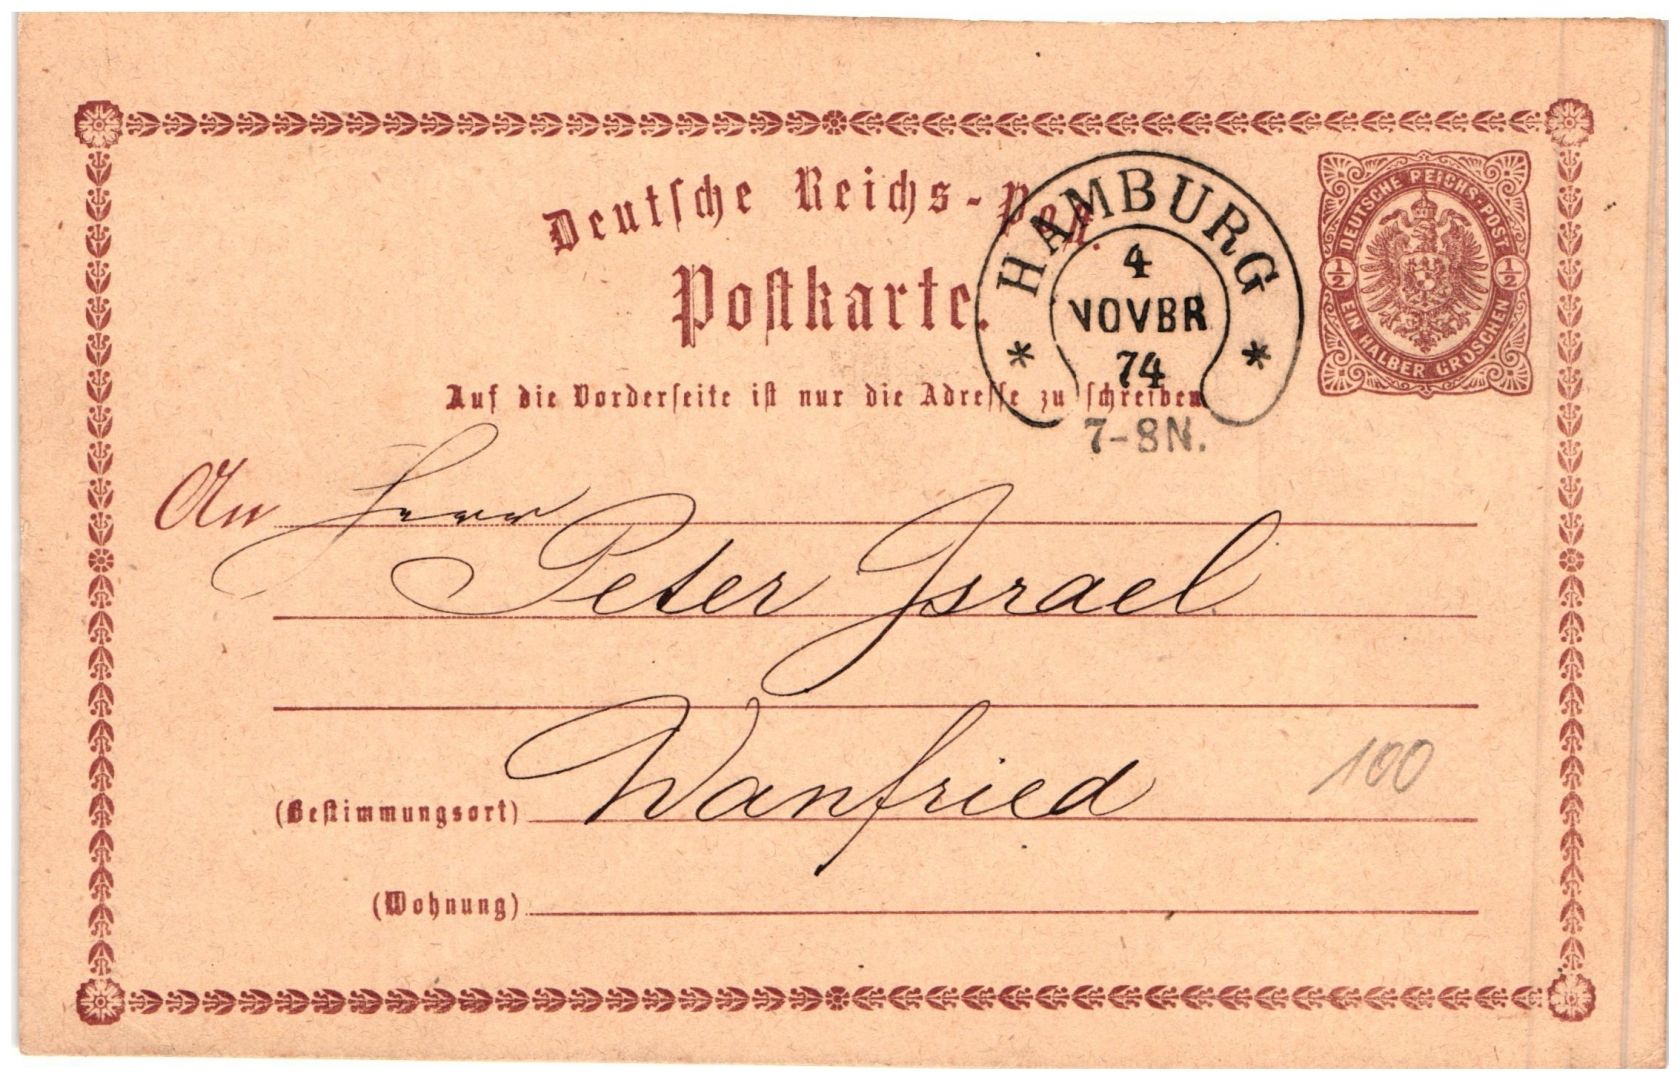 Deutsche Reichs-Post.
DEUTSCHE REICHS-POST
1/2 1/2
EIN HALBER GROSCHEN
HAMBURG
4
NOVBR
74
7-8N.
Postkarte.
Auf die Vorderseite ist nur die Adresse zu schreiben
An Herrn
Peter Israel
Wanfried
100
(Bestimmungsort)
(Wohnung)